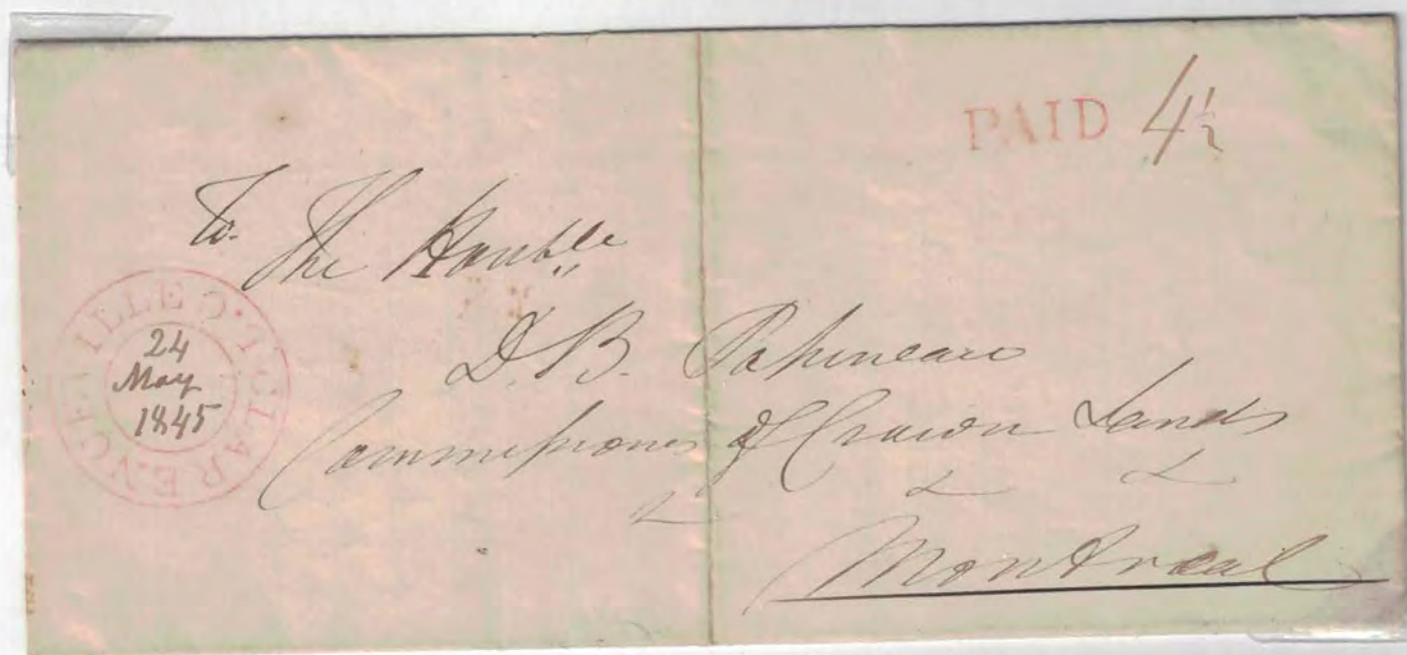 PAID 4½
To. The Honble
D. B. Papineau
Commissioner of Crown Lands
&  &  &
Montreal
CLARENCEVILLE
24
May
1845